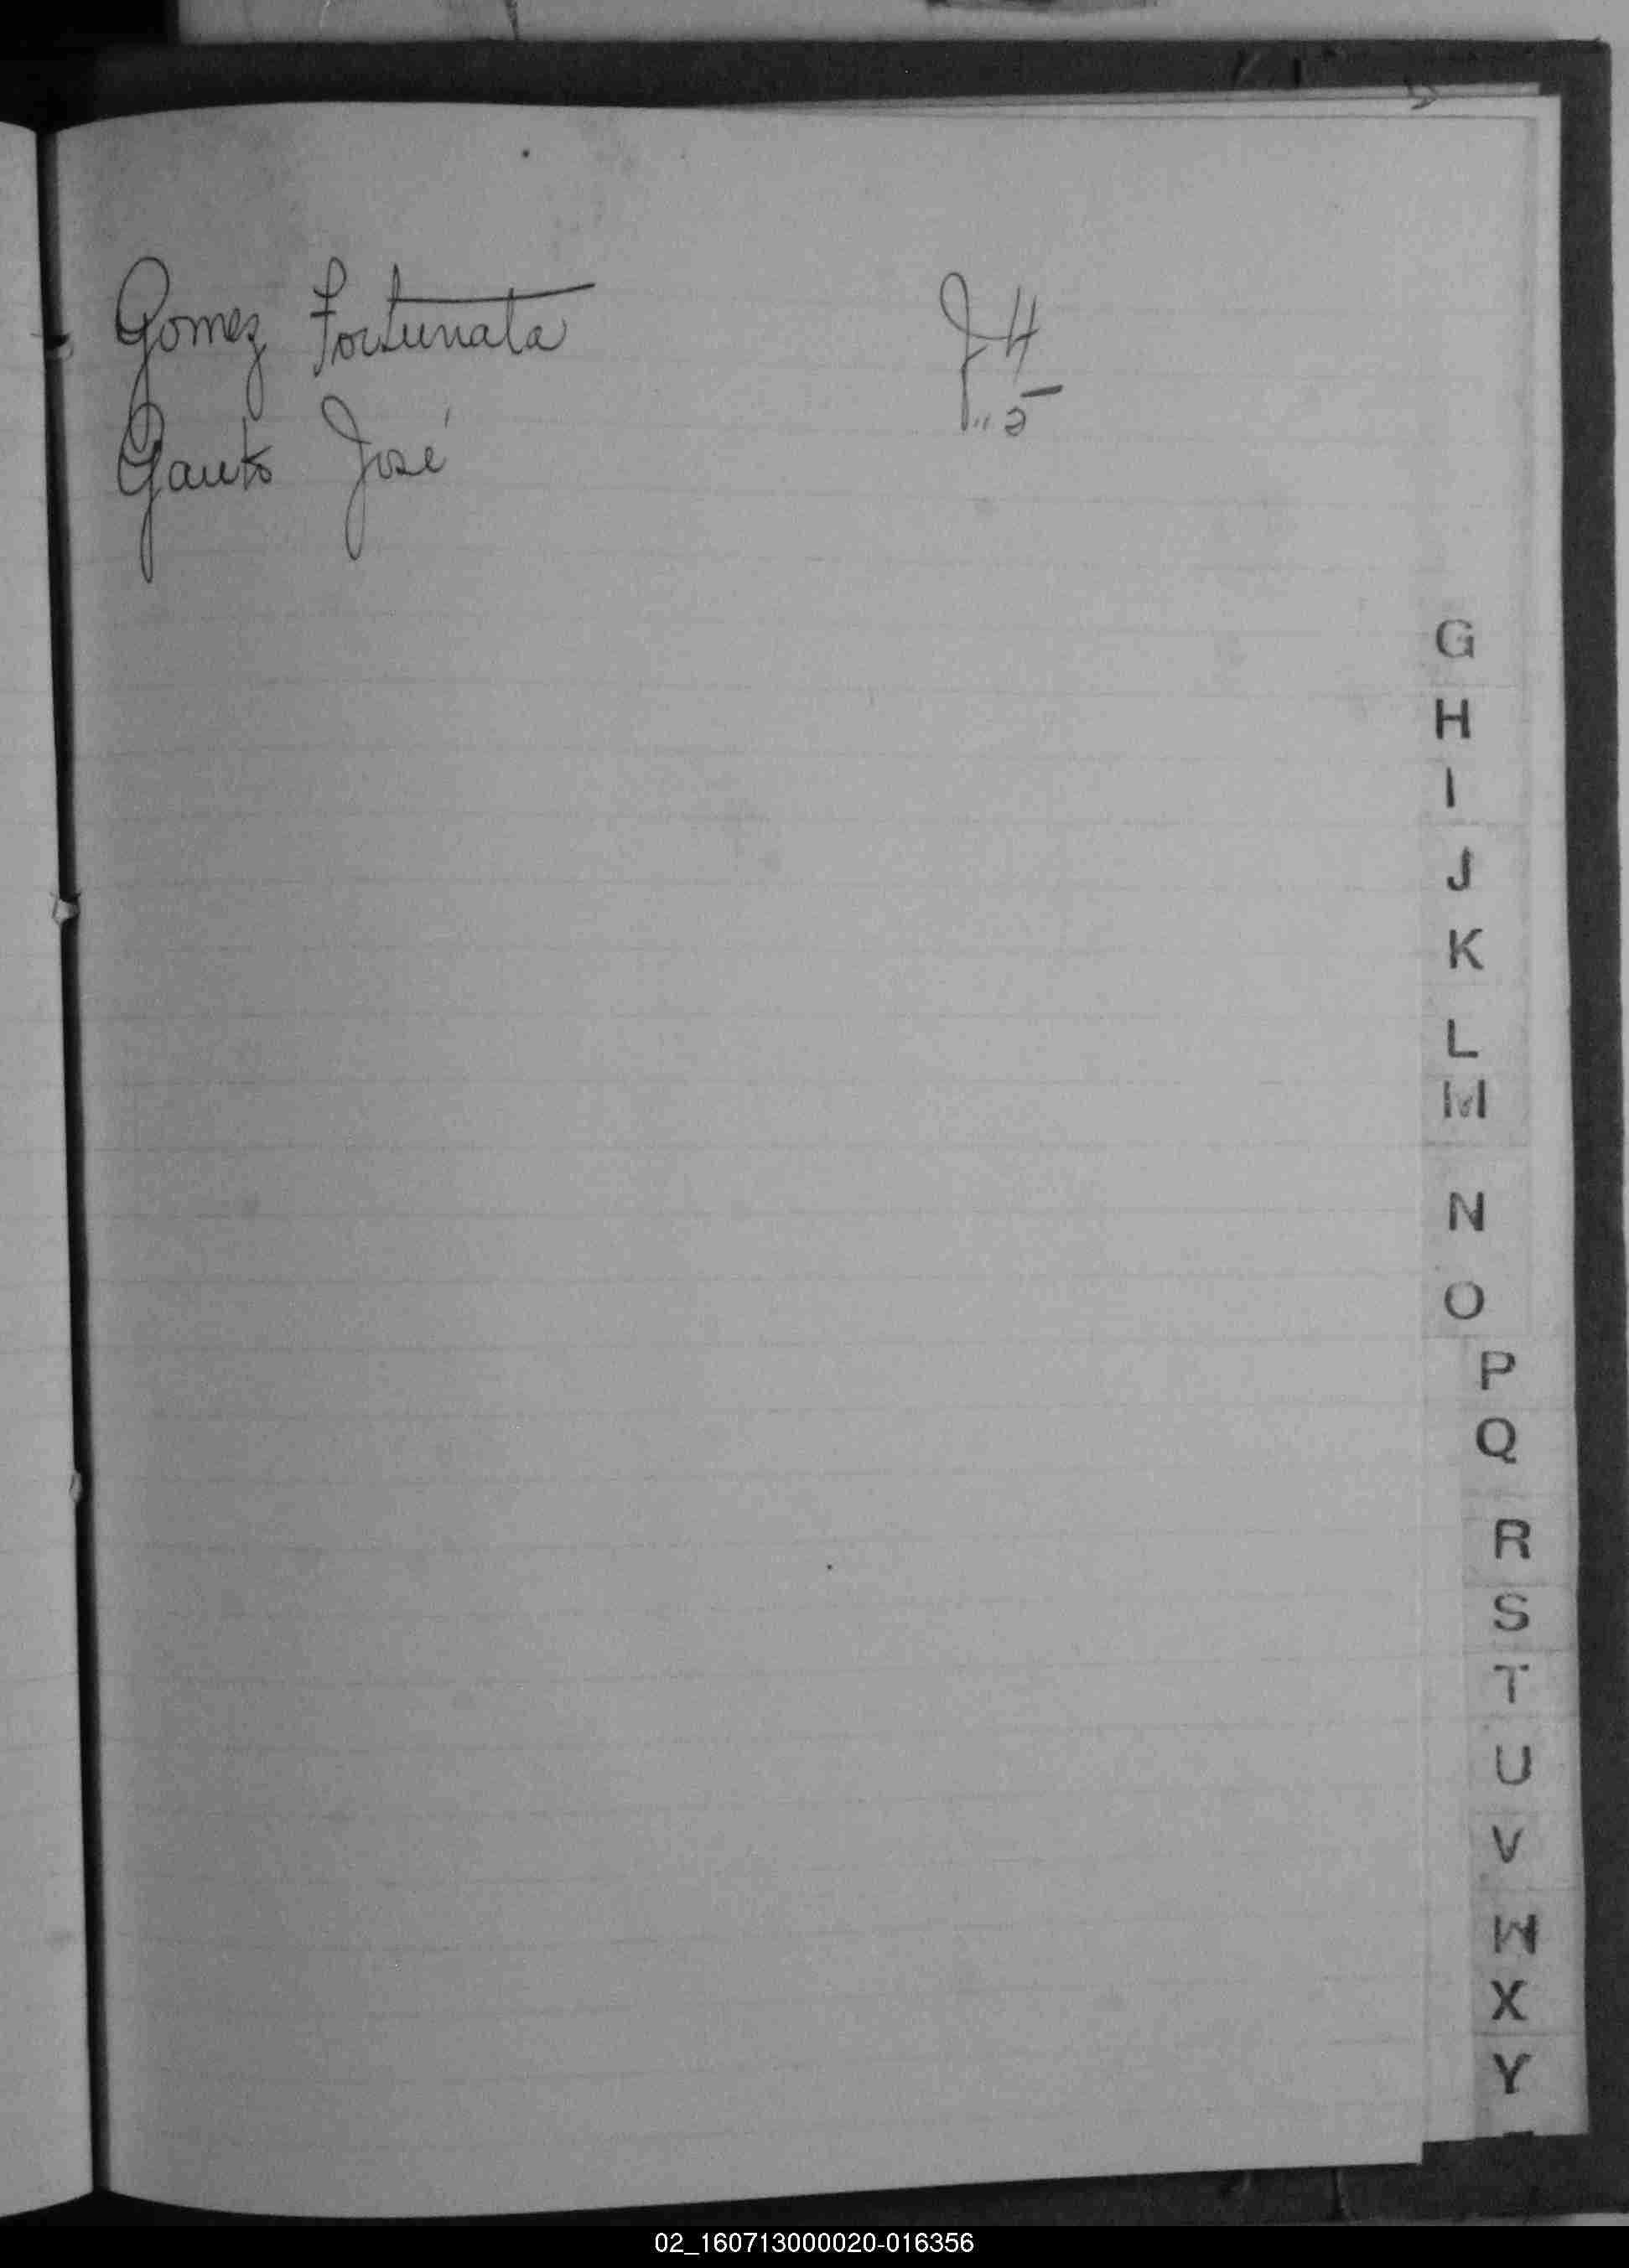 Gomez Fortunata
f 4
Gauto José
" 5
G
H
I
J
K
L
M
N
O
P
Q
R
S
T
U
V
W
X
Y
02_160713000020-016356